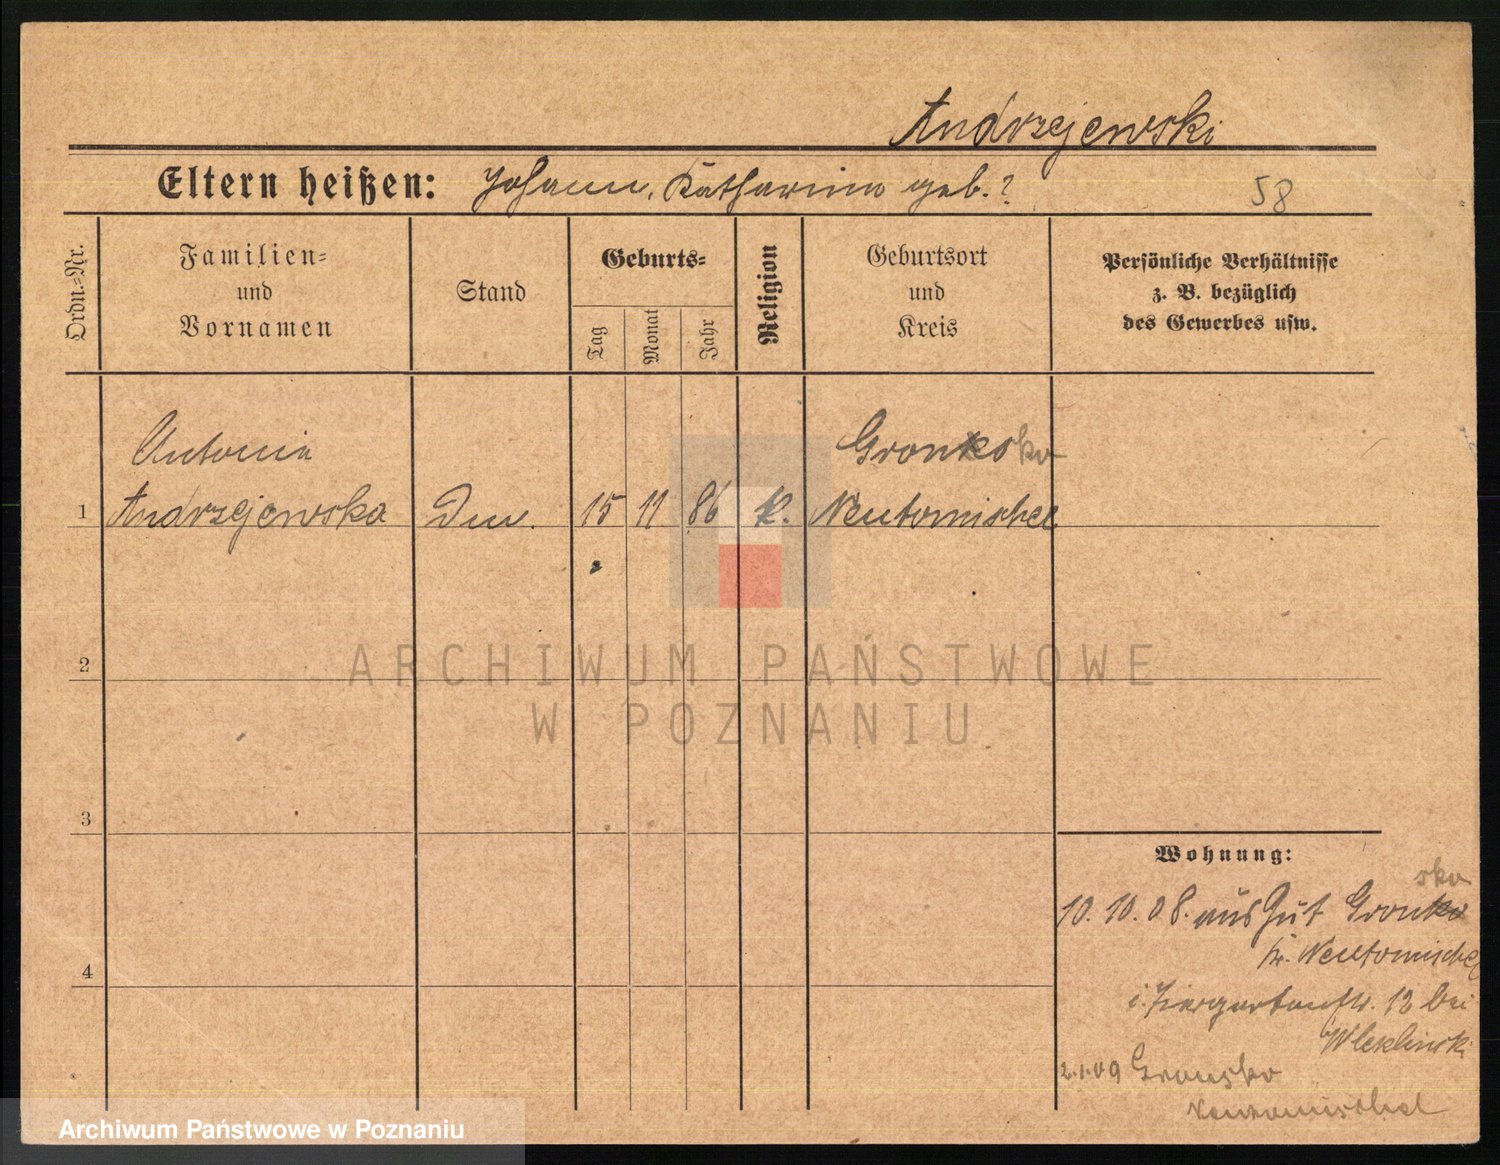 Andrzejewski
Eltern heißen: Johann, Katharina geb.?
58
Ordn.=Nr.
Familien=
und
Vornamen
Stand
Geburts=
Tag
Monat
Jahr
Religion
Geburtsort
und
Kreis
Persönliche Verhältnisse
z. B. bezüglich
des Gewerbes usw.
Antonia
Gronsko
1 Andrzejewska 15 11 86 k. Neutomischel
2
ARCHIWUM PAŃSTWOWE
W POZNANIU
3
Wohnung:
sko
10.10.08. aus Gut Gronko
Kr. Neutomischel
12 bei
4
2.1.09 Gronsko
Neutomischel
Archiwum Państwowe w Poznaniu